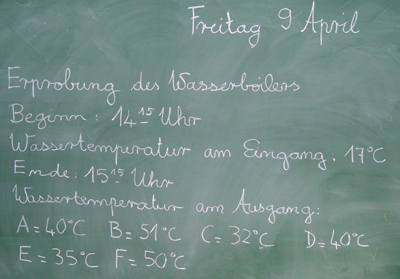 Freitag 9 April
Erprobung des Wasserboilers
Beginn: 14 15 Uhr
Wassertemperatur am Eingang: 17°C
Ende: 15 15 Uhr
Wassertemperatur am Ausgang:
A = 40°C B = 51°C C = 32°C D = 40°C
E = 35°C F = 50°C